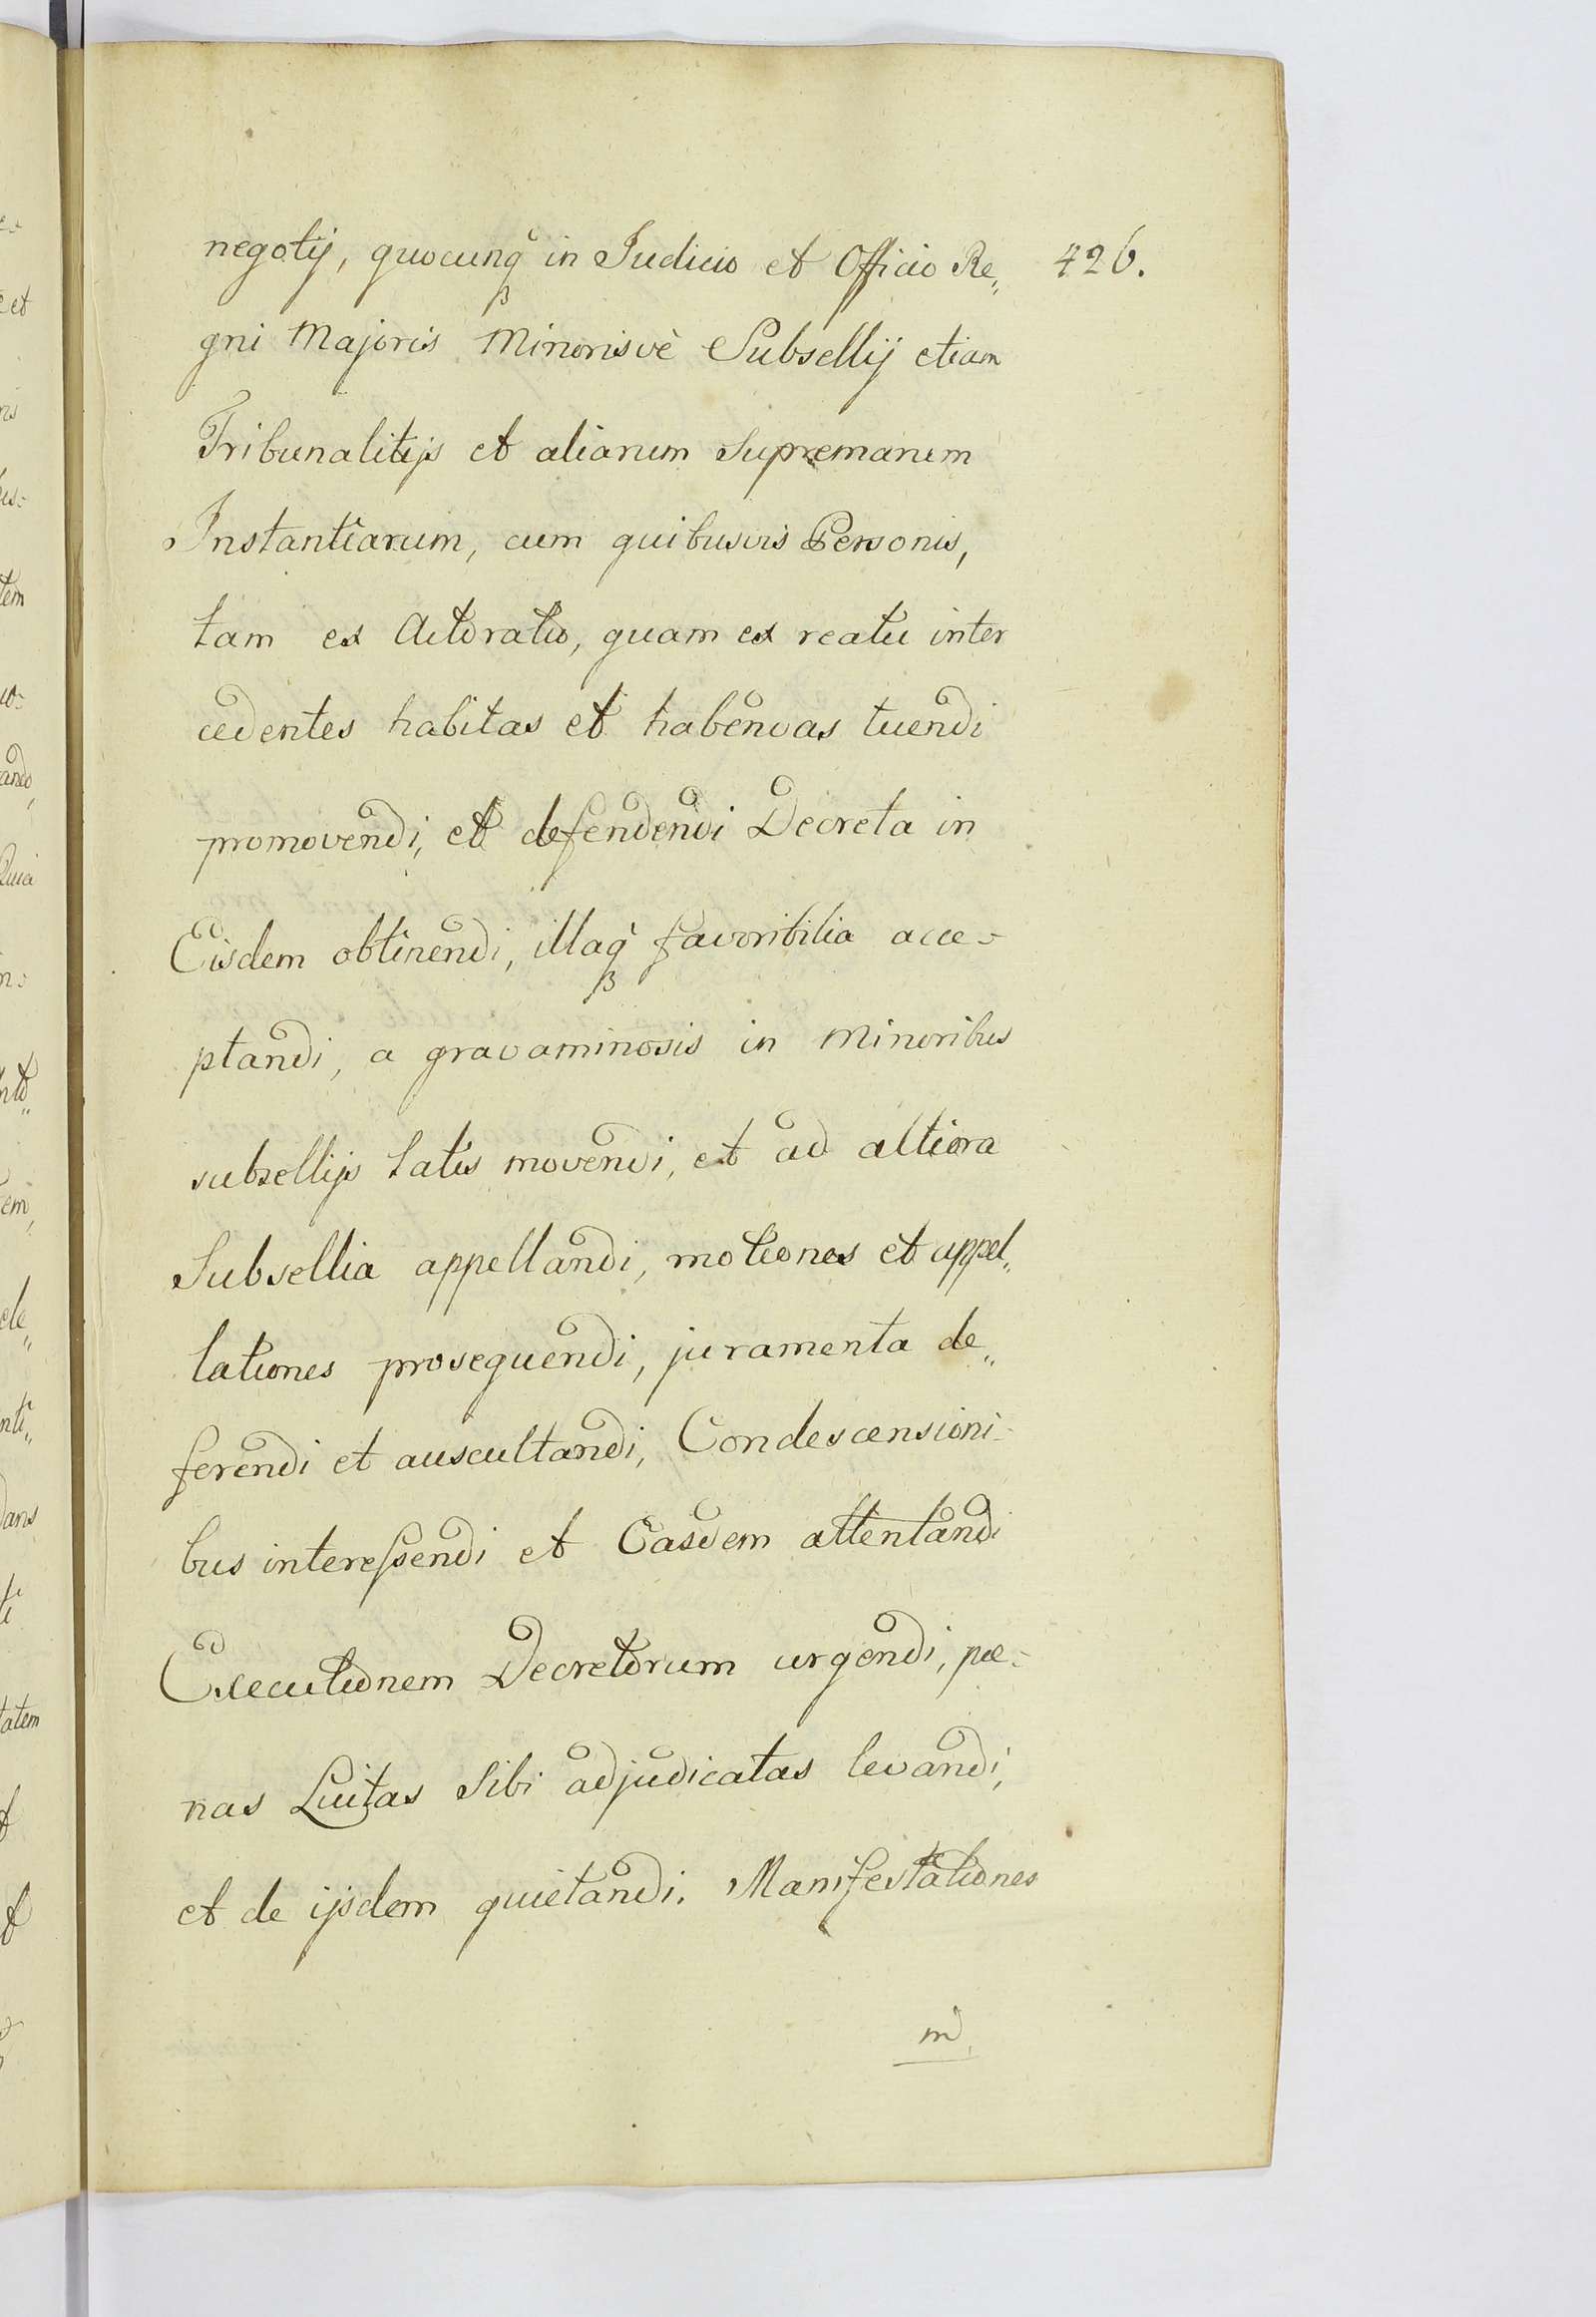 negotij, quocunq in Judicio et Officio Re„ 426.
gni Majoris Minorisvè Subsellij etiam
Tribunalitijs et aliarum Supremarum
Instantiarum, cum quibusvis Personis,
tam ex Actoratu, quam ex reatu inter
cedentes habitas et habendas tuendi
promovendi, et defendendi Decreta in
Eisdem obtinendi, illaq favoribilia acce=
ptandi, a gravaminosis in Minoribus
subsellijs latis movendi, et ad altiora
Subsellia appellandi, motiones et appel„
lationes prosequendi, juramenta de„
ferendi et auscultandi, Condescensioni=
bus interessendi et Easdem attentandi
Executionem Decretorum urgendi, pæ=
nas Luitas Sibi adjudicatas levandi,
et de ijsdem quietandi. Manifestationes